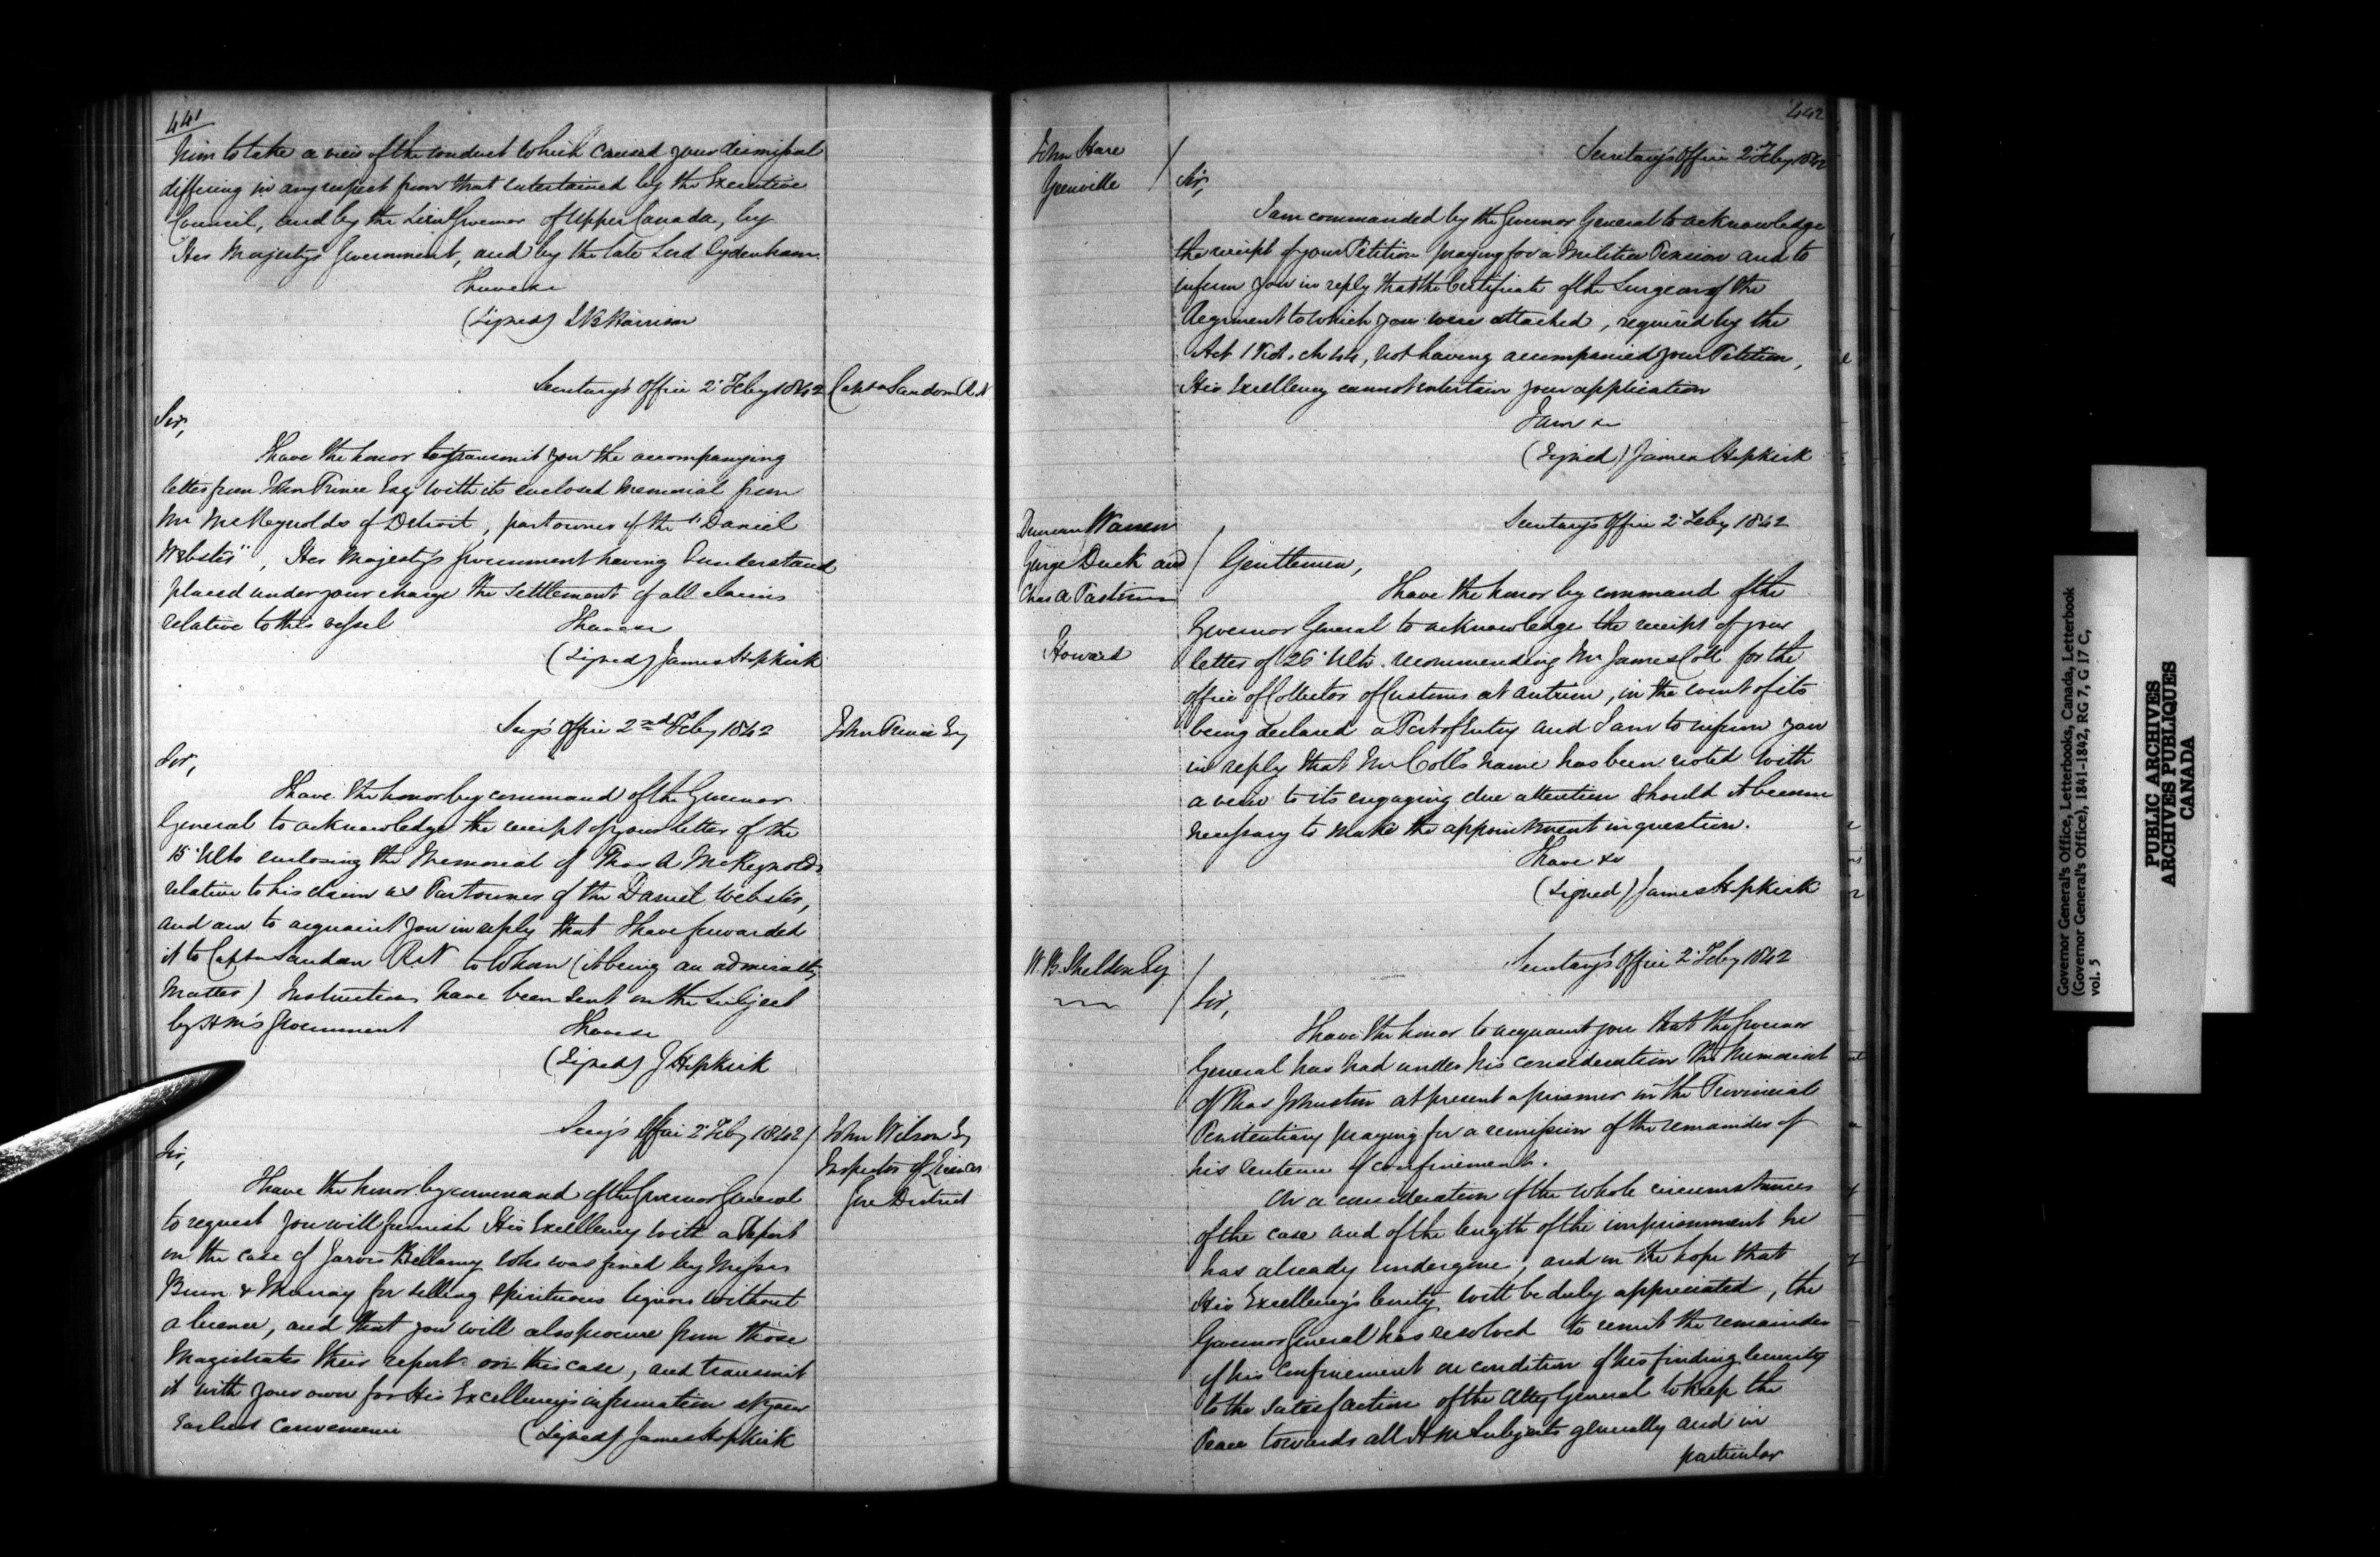 441
him to take a view of the conduct which caused your dismissal
differing in any respect from that entertained by the Executive
Council, and by the Lieut Governor of Upper Canada, by
Her Majesty's Government, and by the late Lord Sydenham.
I have &c
(Signed) S B Harrison
Secretary's Office 2 Feby 1842
Captn Sandom R.N
Sir,
I have the honor to transmit you the accompanying
letter from John Prince Esq with its enclosed Memorial from
Mr McReynolds of Detroit, part owner of the "Daniel
Webster", Her Majesty's Government having I understand
placed under your charge the settlement of all claims
relative to this vessel
I have &c
(Signed) James Hopkirk
Secy's Office 2nd Feby 1842
John Prince Esq
Sir,
I have the honor by command of the Governor
General to acknowledge the receipt of your letter of the
15 Ulto enclosing the Memorial of Thos A McReynolds
relative to his claim as Part owner of the Daniel Webster,
and am to acquaint you in reply that I have forwarded
it to Captn Sandom R.N to whom (it being an admiralty
matter) Instructions have been sent on the subject
by H M's Government
I have &c
(Signed) J Hopkirk
Secy's Office 2 Feby 1842
John Wilson Esq
Inspector of Licences
Gore District
Sir,
I have the honor by command of the Governor General
to request you will furnish His Excellency with a Report
in the case of Jarvis Bellamy who was fined by Messrs
& Murray for selling spirituous liquors without
a licence, and that you will also procure from those
Magistrates their report on this case, and transmit
it with your own for His Excellency's information at your
earliest convenience
(Signed) James Hopkirk
442
John Hare
Grenville
Secretary's Office 2 Feby 1842
Sir,
I am commanded by the Governor General to acknowledge
the receipt of your Petition praying for a Militia Pension and to
inform you in reply that the Certificate of the Surgeon of the
Regiment to which you were attached, required by the
Act 1 Vict. ch 44, not having accompanied your Petition,
His Excellency cannot entertain your application
I am &c
(Signed) James Hopkirk
Duncan Warren
George Duck and
Chas A
Howard
Secretary's Office 2 Feby 1842
Gentlemen,
I have the honor by command of the
Governor General to acknowledge the receipt of your
letter of 26 Ulto. recommending Mr James Coll for the
office of Collector of Customs at Antrim, in the event of its
being declared a Port of Entry and I am to inform you
in reply that Mr Coll's name has been noted with
a view to its engaging due attention should it become
necessary to make the appointment in question.
I have &c
(Signed) James Hopkirk
W. B. Sheldon Esq
Secretary's Office 2 Feby 1842
Sir,
I have the honor to acquaint you that the Governor
General has had under his consideration the Memorial
of Thos Johnston at present a prisoner in the Provincial
Penitentiary praying for a remission of the remainder of
his sentence of confinement.
On a consideration of the whole circumstances
of the case and of the length of the imprisonment he
has already undergone, and in the hope that
His Excellency's lenity will be duly appreciated, the
Governor General has resolved to remit the remainder
of his confinement on condition of his finding security
to the satisfaction of the Atty General to keep the
Peace towards all H M Subjects generally and in
particular
Governor General's Office, Letterbooks, Canada, Letterbook
(Governor General's Office), 1841-1842, RG 7, G 17 C,
vol. 5
PUBLIC ARCHIVES
ARCHIVES PUBLIQUES
CANADA